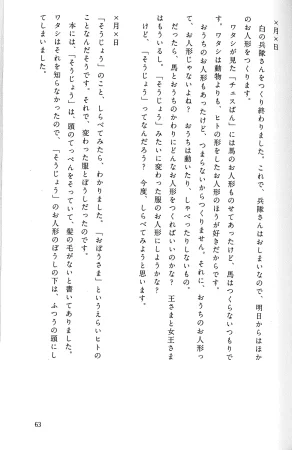 ×月×日
白の兵隊さんをつくり終わりました。これで、兵隊さんはおしまいなので、明日からはほか
のお人形をつくります。
ワタシが見た「チェスばん」には馬のお人形ものせてあったけど、馬はつくらないつもりで
す。ワタシは動物よりも、ヒトの形をしたお人形のほうが好きだからです。
おうちのお人形もあったけど、つまらないからつくりません。それに、おうちのお人形っ
て、お人形じゃないよね？　おうちは動いたり、しゃべったりしないもの。
だったら、馬とおうちのかわりにどんなお人形をつくればいいのかな？　王さまと女王さま
はもういるし。「そうじょう」みたいに変わった服のお人形にしようかな？
けど、「そうじょう」ってなんだろう？　今度、しらべてみようと思います。
×月×日
「そうじょう」のこと、しらべてみたら、わかりました。「おぼうさま」というえらいヒトの
ことなんだそうです。それで、変わった服とぼうしだったのです。
本には、「そうじょう」は、頭のてっぺんをそっていて、髪の毛がないと書いてありました。
ワタシはそれを知らなかったので、「そうじょう」のお人形のぼうしの下は、ふつうの頭にし
てしまいました。
63